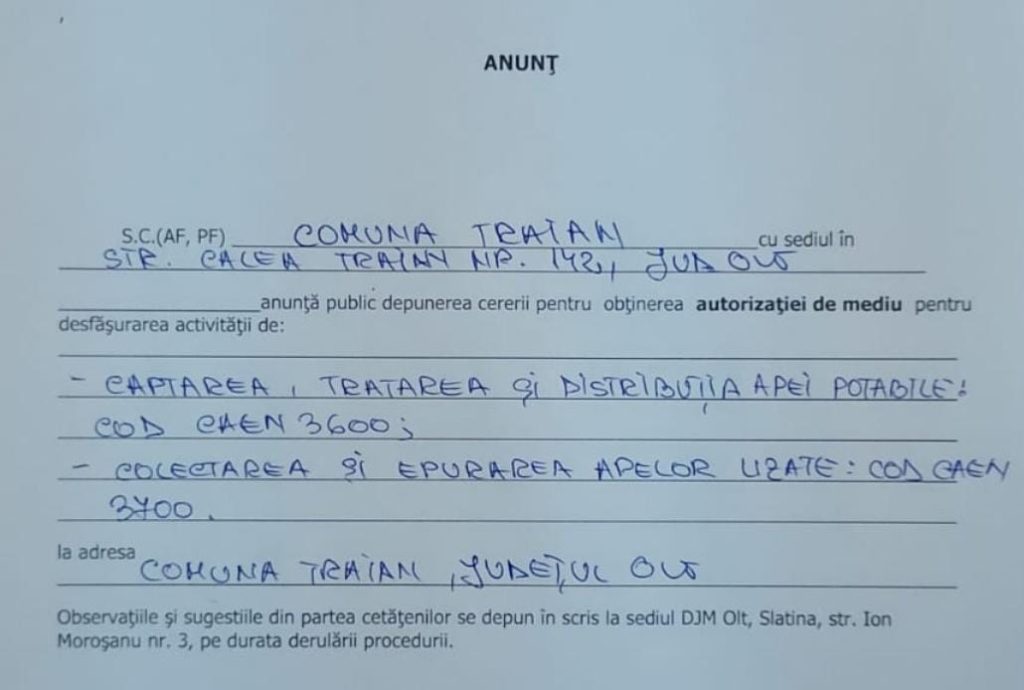 ANUNŢ
S.C.(AF, PF) COMUNA TRAIAN cu sediul în
STR. CALEA TRAIAN NR. 142, JUD OLT
anunţă public depunerea cererii pentru obţinerea autorizaţiei de mediu pentru
desfăşurarea activităţii de:
- CAPTAREA, TRATAREA ŞI DISTRIBUŢIA APEI POTABILE:
COD CAEN 3600;
- COLECTAREA ŞI EPURAREA APELOR UZATE: COD CAEN
3700.
la adresa COMUNA TRAIAN, JUDEŢUL OLT
Observaţiile şi sugestiile din partea cetăţenilor se depun în scris la sediul DJM Olt, Slatina, str. Ion
Moroşanu nr. 3, pe durata derulării procedurii.